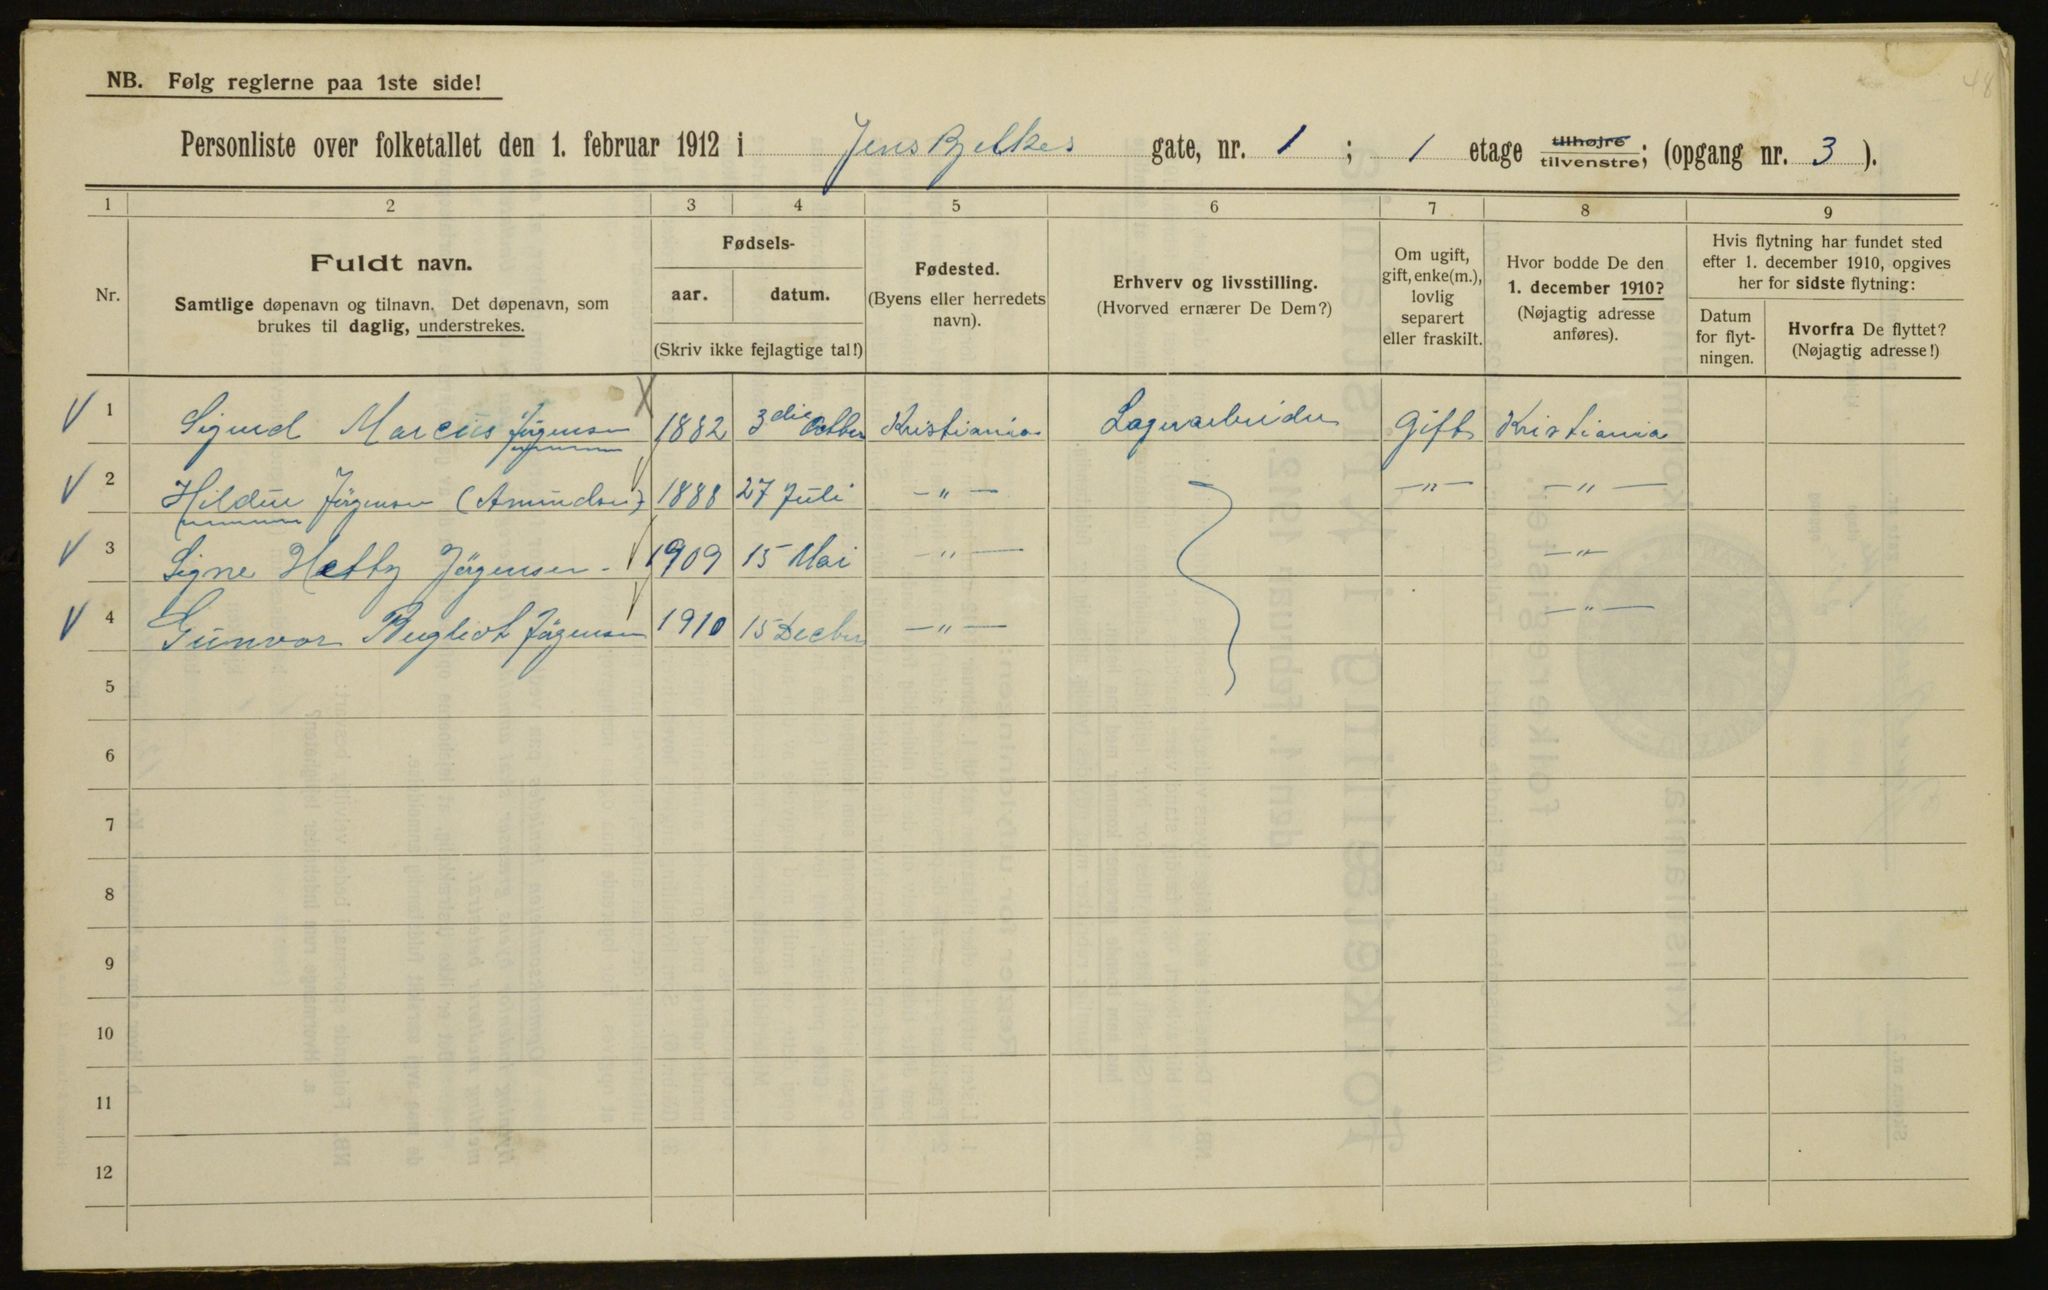 48
NB. Følg reglerne paa 1ste side!
Personliste over folketallet den 1. februar 1912 i Jens Bjelkes gate, nr. 1 ; 1 etage tilhøjre tilvenstre; (opgang nr. 3 ).
1 2 3 4 5 6 7 8 9
Nr.
Fuldt navn.
Samtlige døpenavn og tilnavn. Det døpenavn, som
brukes til daglig, understrekes.
Fødsels-
aar. datum.
(Skriv ikke fejlagtige tal!)
Fødested.
(Byens eller herredets
navn).
Erhverv og livsstilling.
(Hvorved ernærer De Dem?)
Om ugift,
gift, enke(m.),
lovlig
separert
eller fraskilt.
Hvor bodde De den
1. december 1910?
(Nøjagtig adresse
anføres).
Hvis flytning har fundet sted
efter 1. december 1910, opgives
her for sidste flytning:
Datum
for flyt-
ningen.
Hvorfra De flyttet?
(Nøjagtig adresse!)
1 Sigurd Marcus Jørgensen 1882 3die Octber Kristiania Lagerarbeider Gift Kristiania
2 Hildur Jørgensen (Amundsen) 1888 27 Juli —„— —„— —„—
3 Signe Hetty Jörgensen 1909 15 Mai —„— —„—
4 Gunvor Jørgensen 1910 15 Decber —„— —„—
5
6
7
8
9
10
11
12